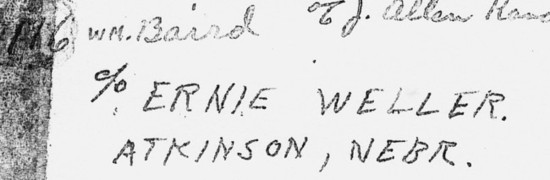 WM. Baird % J. Allen
% ERNIE WELLER.
ATKINSON, NEBR.